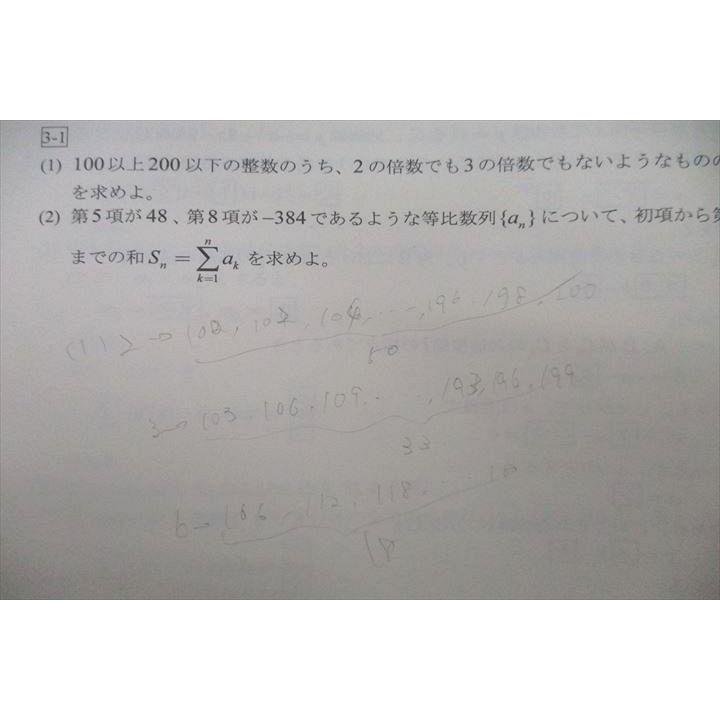 3-1
(1) 100以上200以下の整数のうち、2の倍数でも3の倍数でもないようなものの
を求めよ。
(2) 第5項が48、第8項が−384であるような等比数列{aₙ}について、初項から第
までの和 Sₙ = Σ_{k=1}^{n} aₖ を求めよ。
(1) 2→ 100, 102, 104, ‥‥, 196, 198, 200
50
3→ 103, 106, 109, ‥‥, 193, 196, 199
33
6→ 106, 112, 118, ‥‥
18